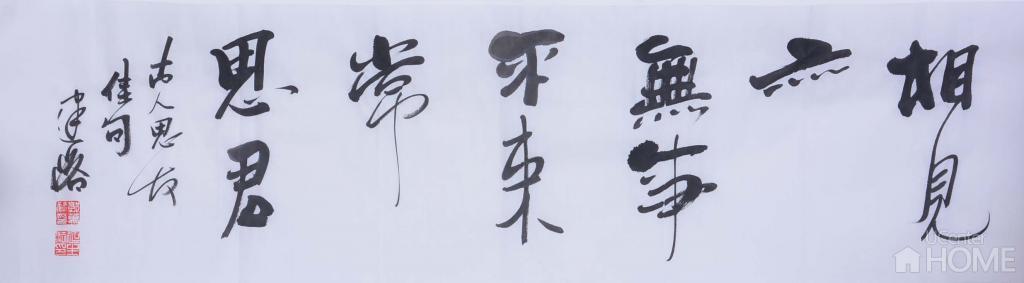 相見
亦
無事
不来
常
思君
古人思友
佳句
建
UCenter
HOME